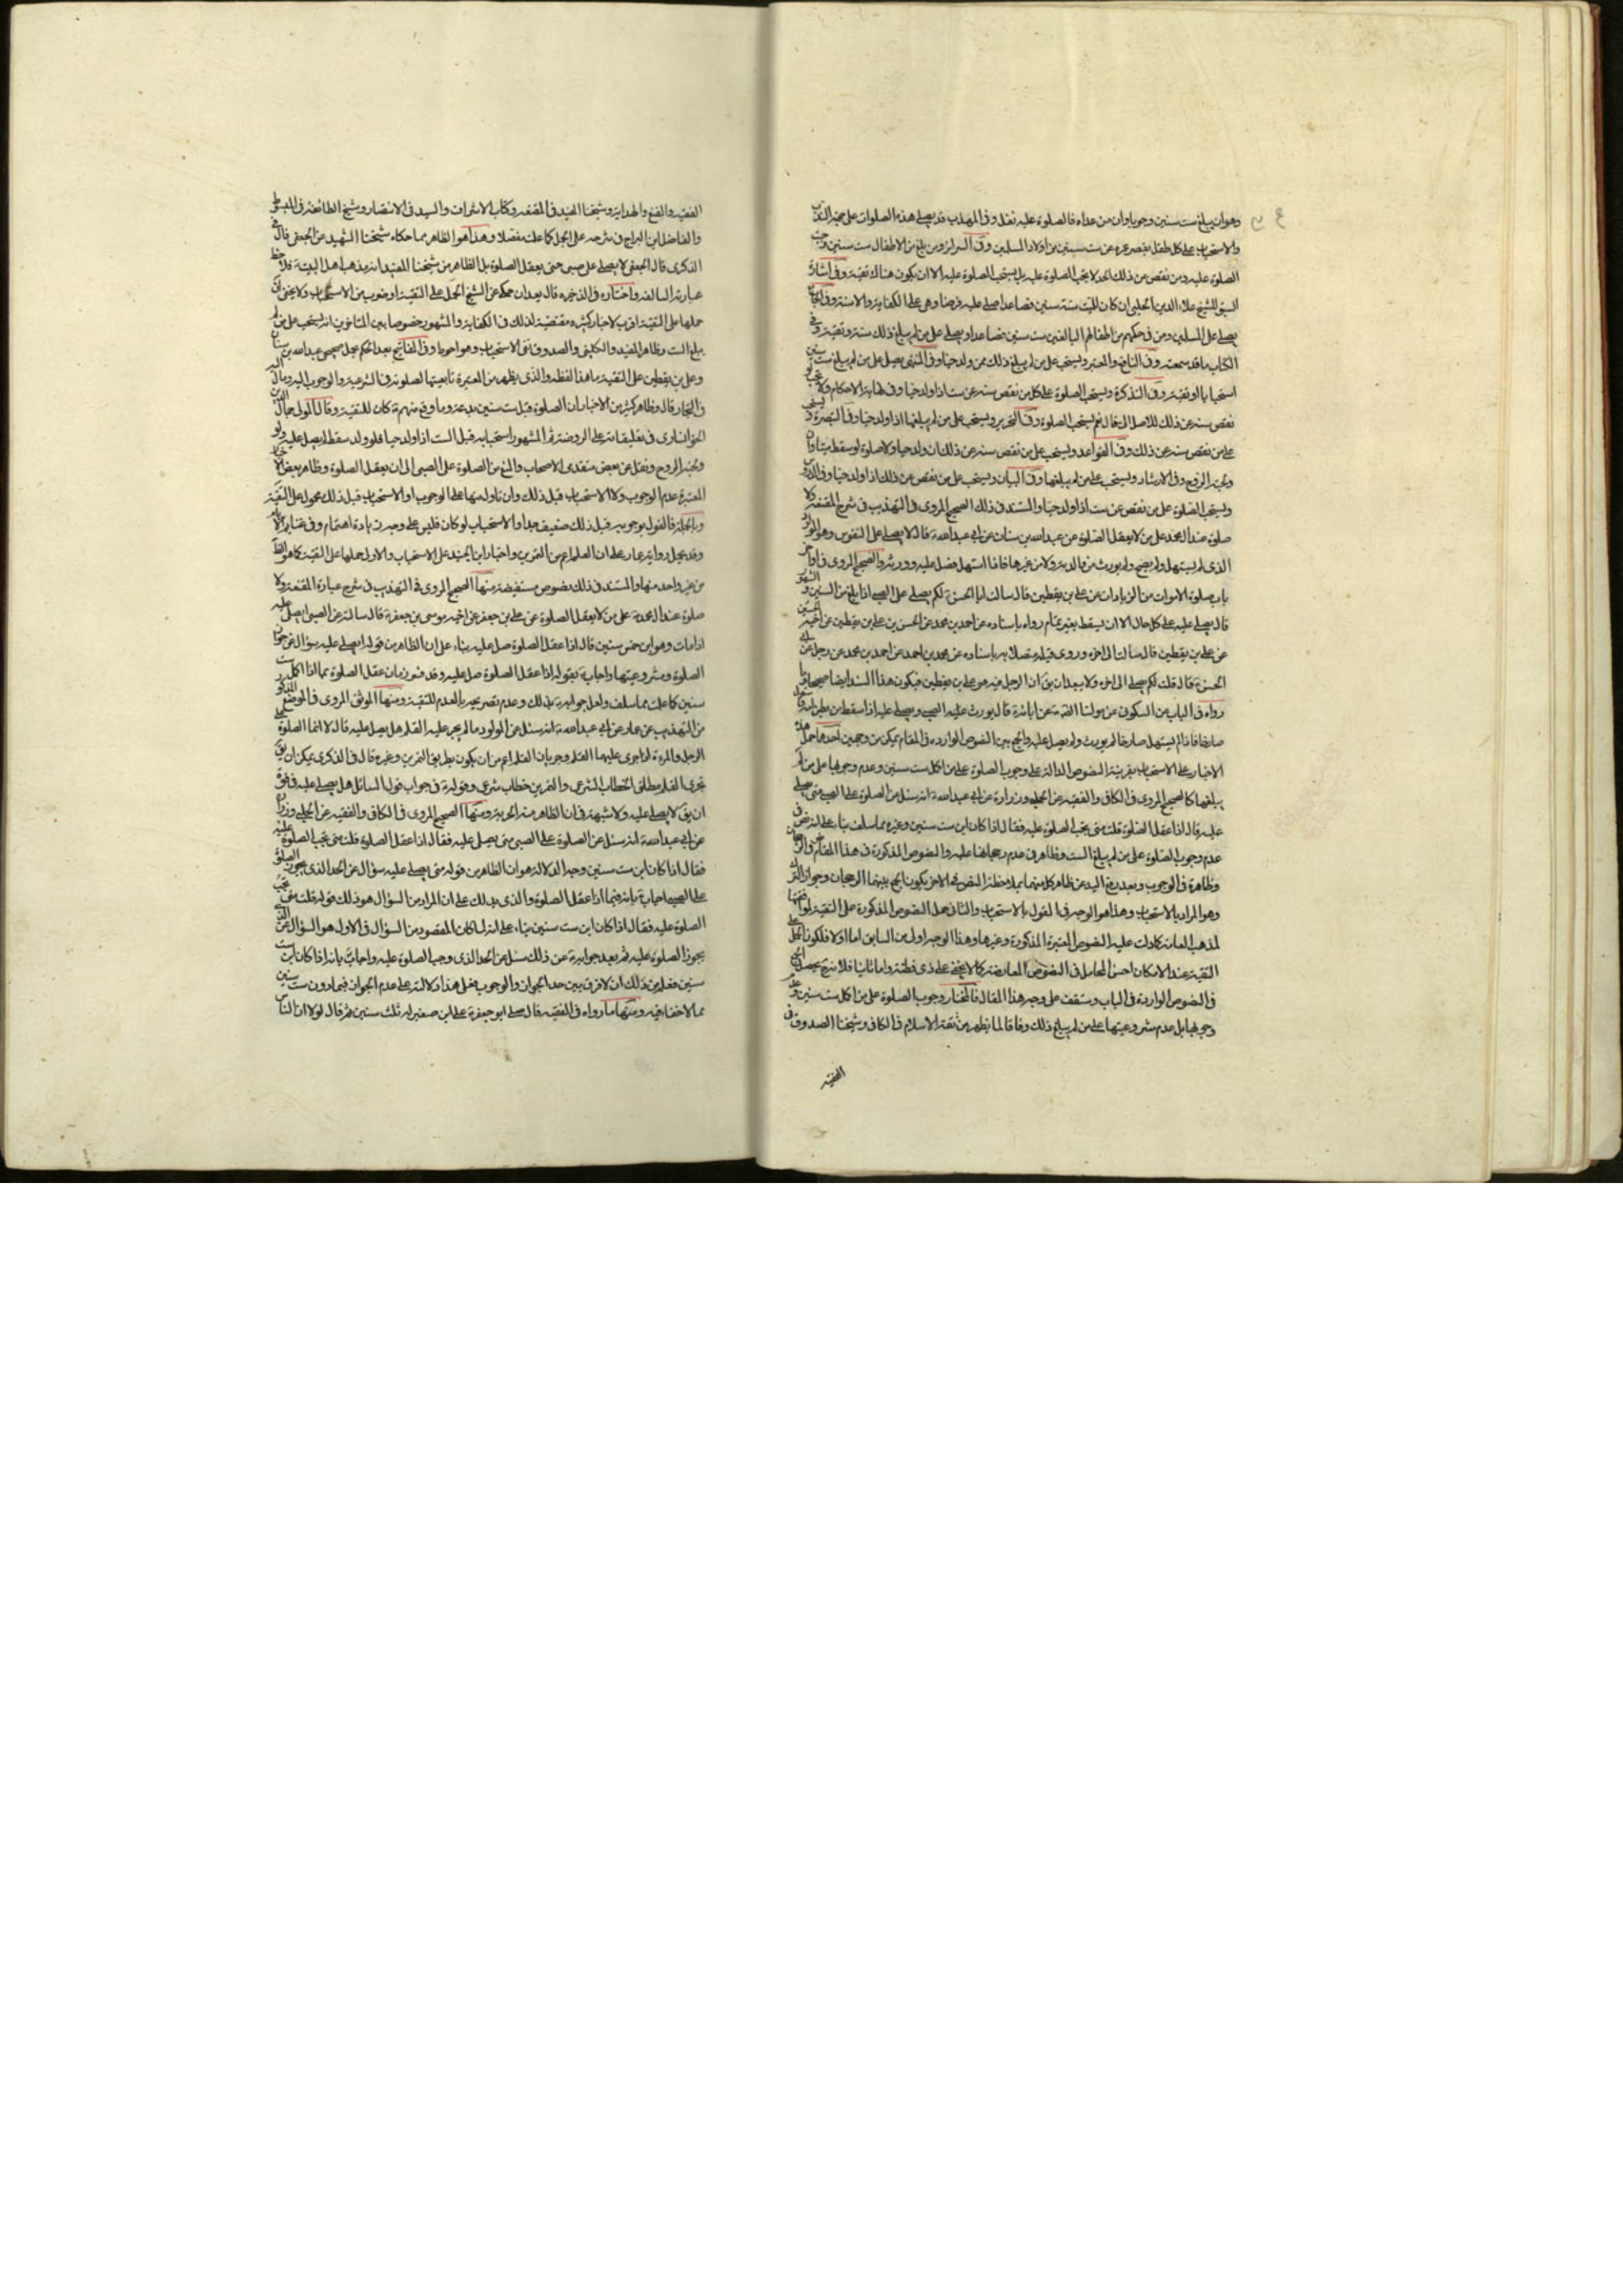 وهو ان يبلغ ست سنين وجوبا وان من عداه فالصلوة عليه نفل وفى المهذب قد يصلى هذه الصلوات على جهة الندب
والاستحباب على كل طفل ينقص عمره عن ست سنين من اولاد المسلمين وفى السرائر ومن بلغ من الاطفال ست سنين وجب
الصلوة عليه ومن نقص من ذلك الحد لا يجب الصلوة عليه بل يستحب الصلوة عليه الا ان يكون هناك تقية وفى اشارة
السبق للشيخ علاء الدين الحلبى ان كان للميت ستة سنين فصاعدا صلى عليه فرضا وهى على الكفاية والا سنة وفى الجامع
يصلى على المسلمين ومن فى حكمهم من اطفالهم البالغين ست سنين فصاعدا ويصلى على من لم يبلغ ذلك سنة وتقية وفى
الكتاب ما قد سمعته وفى النافع والمعتبر ويستحب على من لم يبلغ ذلك ممن ولد حيا وفى المنتهى يصلى على من لم يبلغ ست سنين
استحبابا او تقية وفى التذكرة ويستحب الصلوة على كل من نقص سنه عن ست اذا ولد حيا وفى نهاية الاحكام ولا تجب لو
نقص سنه عن ذلك للاصل الى قال نعم يستحب الصلوة وفى التحرير ويستحب على من لم يبلغها اذا ولد حيا وفى التبصرة ويستحب
على من نقص سنه عن ذلك وفى القواعد ويستحب على من نقص سنه عن ذلك ان ولد حيا ولا صلوة لو سقط ميتا وان
ولجته الروح وفى الارشاد ويستحب على من لم يبلغها وفى البيان ويستحب على من نقص عن ذلك اذا ولد حيا وفى الدروس
ويستحب الصلوة على من نقص عن ست اذا ولد حيا والمستند فى ذلك الصحيح المروى فى التهذيب فى شرح المقنعة ولا
صلوة عند آل محمد على من لا يعقل الصلوة عن عبد الله بن سنان عن ابى عبد الله ع قال لا يصلى على المنفوس وهو المولود
الذى لم يستهل ولم يصح ولم يورث من الدية ولا من غيرها فاذا استهل فصل عليه وورثه والصحيح المروى فى اواخر
باب صلوة الاموات من الزيادات عن على بن يقطين قال سالت ابا الحسن ع لكم يصلى على الصبى اذا بلغ من السنين والشهور
قال يصلى عليه على كل حال الا ان يسقط بغير تمام رواه باسناده عن احمد بن محمد عن الحسن بن على بن يقطين عن اخيه الحسين
عن على بن يقطين قال سالت الى اخره وروى قبله متصلا به باسناده عن محمد بن احمد عن احمد بن محمد عن رجل عن ابى
الحسن ع قال قلت لكم يصلى الى اخره ولا يبعد ان يق ان الرجل فيه هو على بن يقطين فيكون هذا السند ايضا صحيحا وما
رواه فى الباب عن السكونى عن مولنا الصادق ع عن ابائه ع قال يورث عليه الصبى ويصلى عليه اذا سقط من بطن امه فاستهل
صارخا فاذا لم يستهل صارخا لم يورث ولم يصل عليه والجمع بين النصوص الواردة فى المقام يمكن من وجهين احدهما حمل هذه
الاخبار على الاستحباب بقرينة النصوص الدالة على وجوب الصلوة على من اكمل ست سنين وعدم وجوبها على من لم
يبلغها كالصحيح المروى فى الكافى والفقيه عن الحلبى وزرارة عن ابى عبد الله ع انه سئل عن الصلوة على الصبى متى يصلى
عليه قال اذا عقل الصلوة قلت متى تجب الصلوة عليه فقال اذا كان ابن ست سنين وغيره مما سلف بناء على انه نص فى
عدم وجوب الصلوة على من لم يبلغ الست وظاهر فى عدم رجحانها عليه والنصوص المذكورة فى هذا المقام نص فى الرجحان
وظاهرة فى الوجوب وبعد رفع اليد عن ظاهر كل منهما بملاحظة النص فى الاخر يكون الجمع بينهما الرجحان وجواز الترك
وهو المراد بالاستحباب وهذا هو الوجه فى القول بالاستحباب والثانى حمل النصوص المذكورة على التقية لموافقتها
لمذهب العامة كما دلت عليه النصوص المعتبرة المذكورة وغيرها وهذا الوجه اولى من السابق اما اولا فلكون الحمل على
التقية عند الامكان احسن المحامل فى النصوص المعارضة كما لا يخفى على ذى فطنة واما ثانيا فلانه يحصل الجمع
فى النصوص الواردة فى الباب وستقف على وجه هذا المقال فالمختار وجوب الصلوة على من اكمل ست سنين وعدم
وجوبها بل عدم مشروعيتها على من لم يبلغ ذلك وفاقا لما يظهر من ثقة الاسلام فى الكافى وشيخنا الصدوق فى
الفقيه
الفقيه والمقنع والهداية وشيخنا المفيد فى المقنعة وكتاب الاشراف والسيد فى الانتصار وشيخ الطائفة فى المبسوط
والفاضل ابن البراج فى شرحه على الجمل كما علمت مفصلا وهذا هو الظاهر مما حكاه شيخنا الشهيد عن الجعفى قال فى
الذكرى قال الجعفى لا يصلى على صبى حتى يعقل الصلوة بل الظاهر من شيخنا المفيد انه مذهب اهل البيت ع فلاحظ
عبارته السالفة واختاره فى الذخيرة قال بعد ان حكى عن الشيخ الحمل على التقية او ضرب من الاستحباب ولا يخفى ان
حملها على التقية اقرب لاخبار كثيرة مقتضية لذلك فى الكفاية والمشهور خصوصا بين المتاخرين انه يستحب على من لم
يبلغ الست وظاهر المفيد والكلينى والصدوق نفى الاستحباب وهو احوط وفى المفاتيح بعد الحكم بحمل صحيحى عبد الله بن سنان
وعلى بن يقطين على التقية ما هذا لفظه والذى يظهر من المعتبرة تابعيتها لصلوته فى الشرعية والوجوب اليه ومال اليه
فى البحار قال وظاهر كثير من الاخبار ان الصلوة قبل ست سنين بدعة وما وقع منهم ع كان للتقية وقال المولى جمال الدين
الخوانسارى فى تعليقاته على الروضة ثم المشهور استحبابه قبل الست اذا ولد حيا فلو ولد سقطا لم يصل عليه ولو
ولجته الروح ونقل عن بعض متقدمى الاصحاب المنع من الصلوة على الصبى الى ان يعقل الصلوة وظاهر بعض الاخبار
المعتبرة عدم الوجوب ولا الاستحباب قبل ذلك وان تاول منها على الوجوب او الاستحباب قبل ذلك محمول على التقية
وبالجملة فالقول بوجوبه قبل ذلك ضعيف جدا والاستحباب لو كان فليس على وجه زيادة اهتمام
وقد يحمل رواية عمار على ان القلم اعم من التمرين واخبار ابن الجنيد على الاستحباب والاولى حملها على التقية كما هو الظاهر
من غير واحد منها والمستند فى ذلك نصوص مستفيضة منها الصحيح المروى فى التهذيب فى شرح عبارة المقنعة ولا
صلوة عند آل محمد ع على من لا يعقل الصلوة عن على بن جعفر عن اخيه موسى بن جعفر ع قال سالته عن الصبى ايصلى عليه
اذا مات وهو ابن خمس سنين قال اذا عقل الصلوة صل عليه بناء على ان الظاهر من قوله ايصلى عليه سؤال عن جواز
الصلوة ومشروعيتها واجاب ع بقوله اذا عقل الصلوة صل عليه وقد فسر زمان عقل الصلوة بما اذا اكمل ست
سنين كما علمت مما سلف ولعل جوابه ع بذلك وعدم تصريحه بالعدم للتقية ومنها الموثق المروى فى الموضع المذكور
من التهذيب عن عمار عن ابى عبد الله ع انه سئل عن المولود ما لم يجر عليه القلم هل يصلى عليه قال لا انما الصلوة على
الرجل والمرءة اذا جرى عليهما القلم وجريان القلم اعم من ان يكون بطريق التمرين وغيره قال فى الذكرى يمكن ان يق
بجرى القلم مطلق الخطاب الشرعى والتمرين خطاب شرعى وقوله ع فى جواب قول السائل هل يصلى عليه فى قوة
ان يق لا يصلى عليه ولا شبهة فى ان الظاهر منه الحرمة ومنها الصحيح المروى فى الكافى والفقيه عن الحلبى وزرارة
عن ابى عبد الله ع انه سئل عن الصلوة على الصبى متى يصلى عليه فقال اذا عقل الصلوة قلت متى تجب الصلوة عليه
فقال اذا كان ابن ست سنين وجه الدلالة هو ان الظاهر من قوله متى يصلى عليه سؤال عن الحد الذى يجوز الصلوة
على الصبى اجاب ع بانه فيما اذا عقل الصلوة والذى يدلك على ان المراد من السؤال هو ذلك قوله قلت متى تجب
الصلوة عليه فقال اذا كان ابن ست سنين بناء على انه لما كان المقصود من السؤال فى الاول هو السؤال عن الذى
يجوز الصلوة عليه ثم بعد جوابه ع عن ذلك سئل عن الحد الذى وجب الصلوة عليه واجاب بانه اذا كان ابن ست
سنين فعلم من ذلك ان لا فرق بين حد الجواز والوجوب فعلى هذا دلالته على عدم الجواز فيما دون ست سنين
مما لا خفاء فيه ومنها ما رواه فى الفقيه قال صلى ابو جعفر ع على ابن صغير له ثلث سنين ثم قال لولا ان الناس